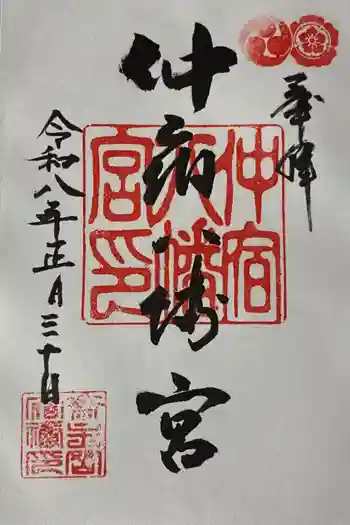 奉拝
仲宿八幡宮
仲宿八幡宮印
令和八年正月三十日